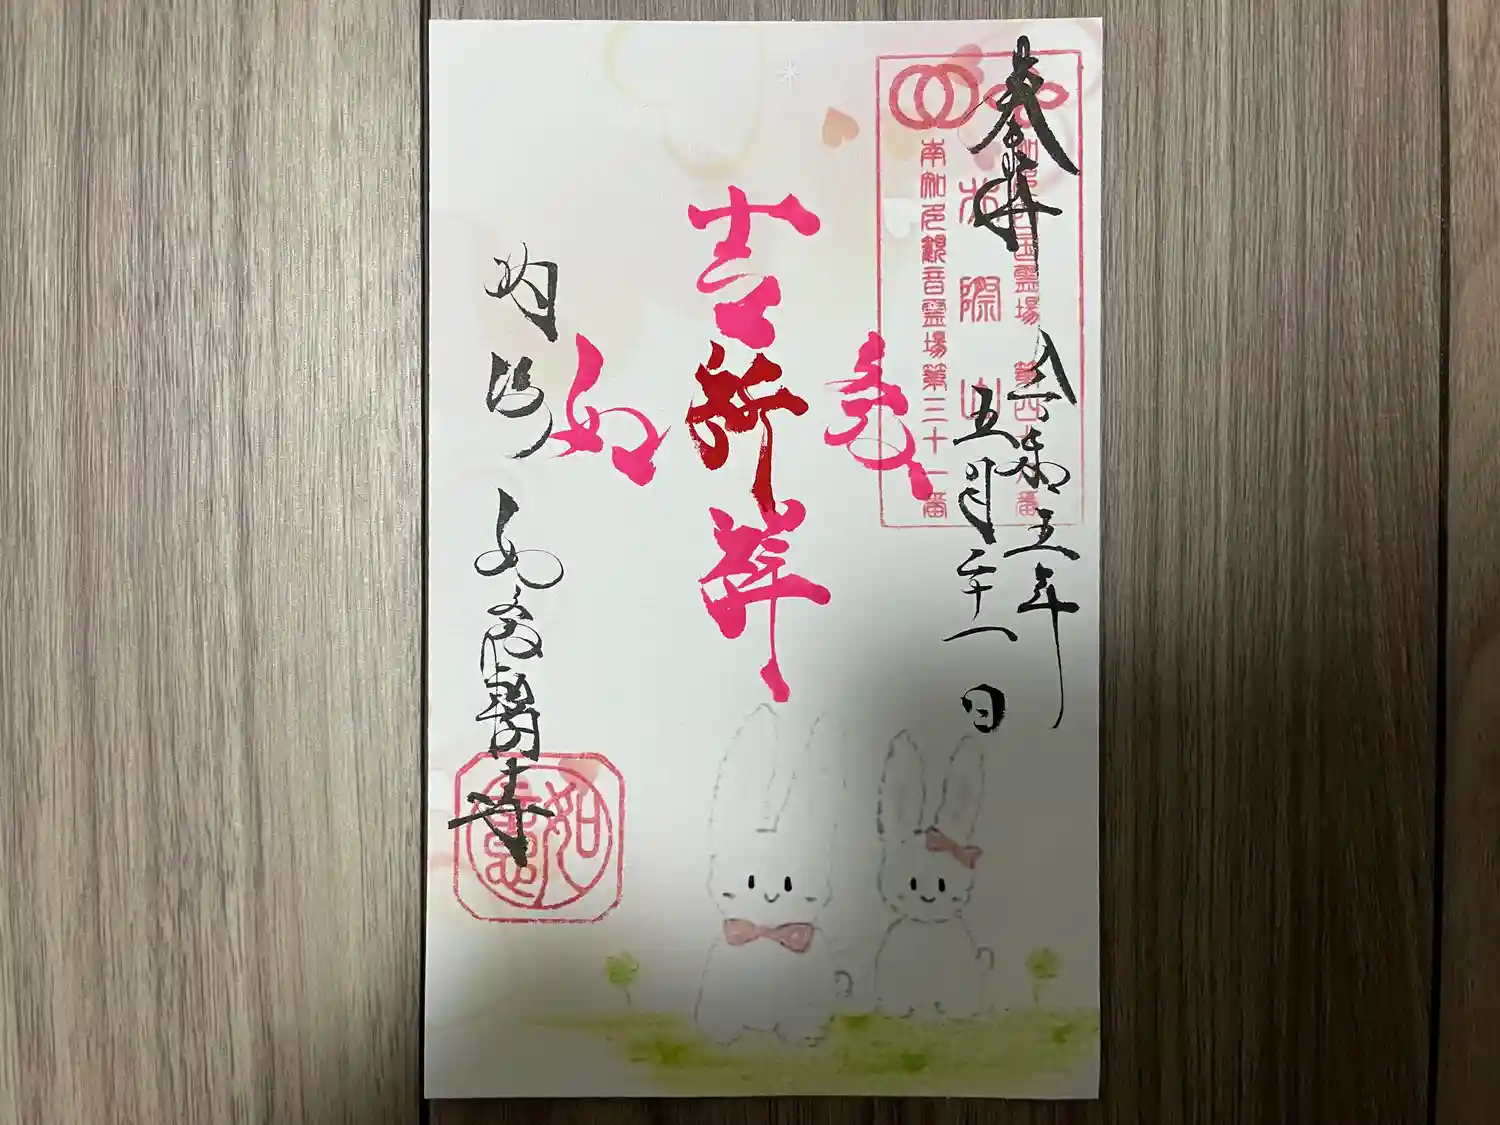 奉拝
令和五年
五月二十一日
知多四国霊場 第四十 番
際山
南知多観音霊場第三十一番
意
吉祈祥
如
内海 如意輪寺
如意